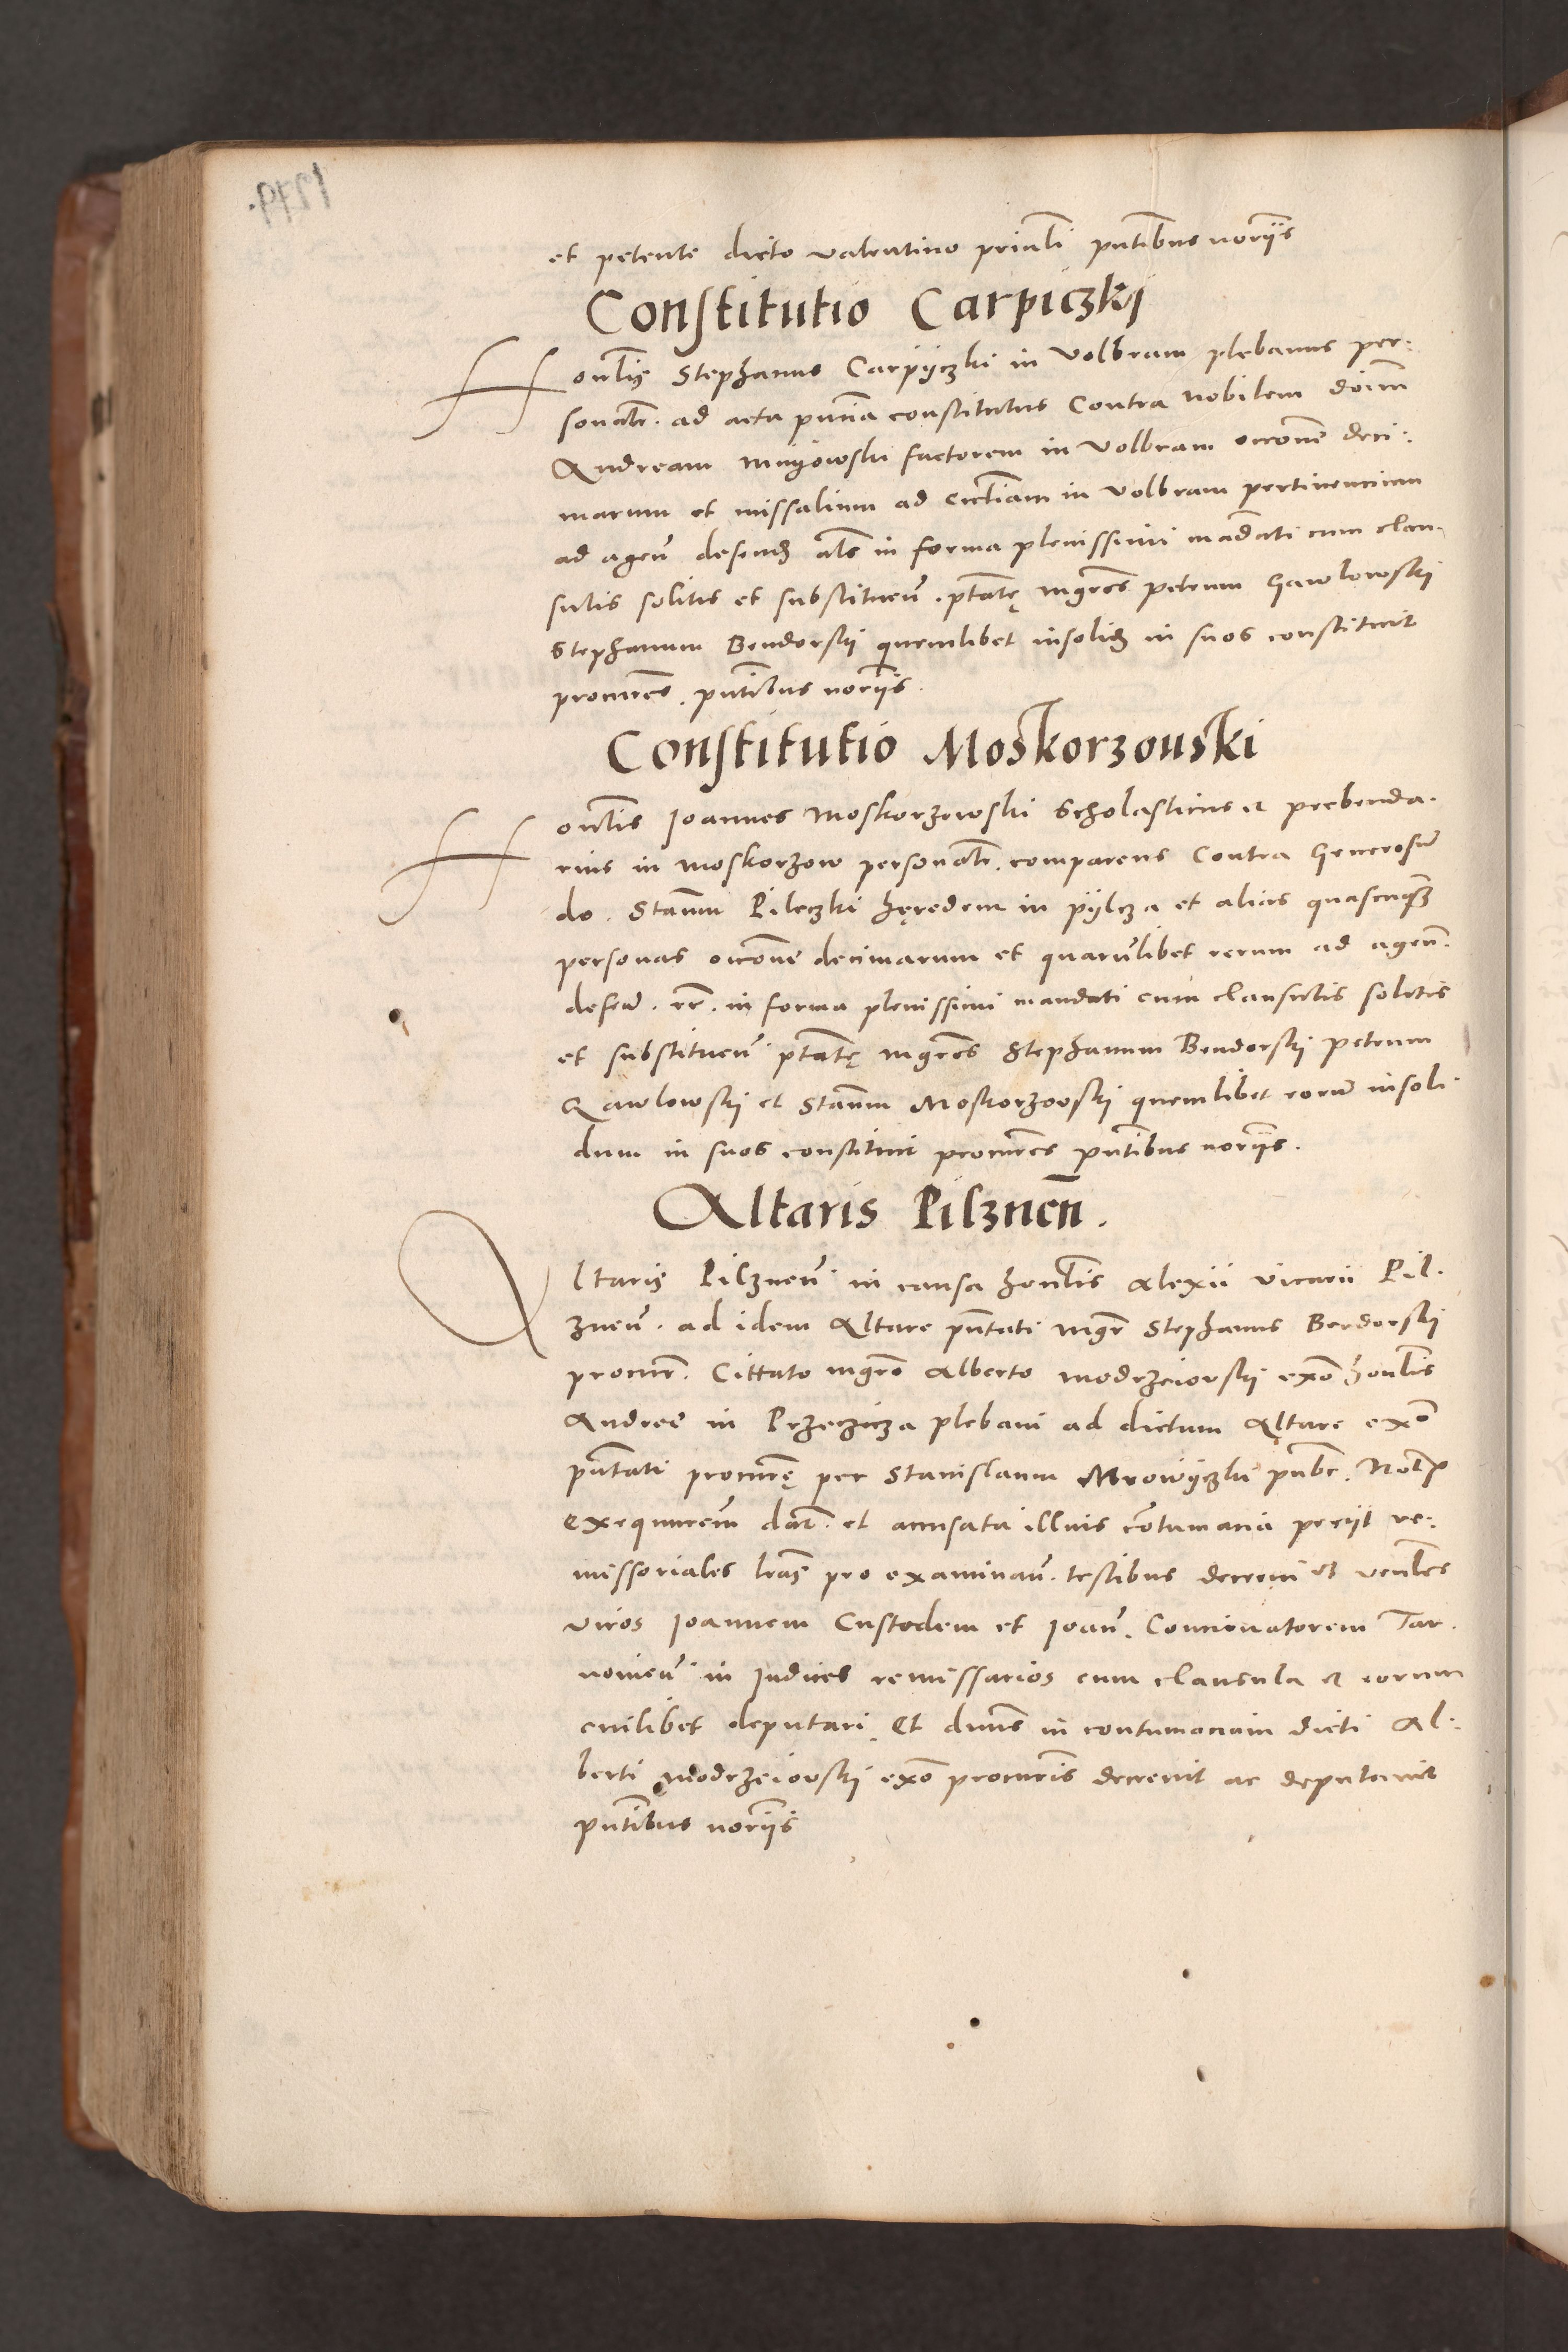 et petente dicto valentino prinli pntibus noriis
Constitutio Carpiczkÿ
Honlis Stephanus Carpÿczki in Volbram plebanus per:
sonalr. ad acta pntia constitutus Contra Nobilem doim
Andream factorem in Volbram occone deci:
marum et missalium ad eccliam in Volbram pertinencium
ad agen defend als in forma plenissimi mandati cum clau
sulis solitis et substituen. ptatę mgros petrum Gawlowskÿ
Stephanum Bendorskÿ quemlibet insolid in suos constituit
procures. pntibus noriis.
Constitutio Moskorzouski
Honlis Joannes Moskorzowski Scholasticus et prebenda.
rius in Moskorzow personalr. comparens Contra Generosum
do. Stanm Pileczki hęredem in pÿlcza et alias quascunqz
personas occone decimarum et quarumlibet rerum ad agen.
defen. rr. in forma plenissimi mandati cum clausulis solitis
et substituen ptatę mgros Stephanum Bendorskÿ petrum
Gawlowskÿ et Stanm Moskorzovskÿ quemlibet eorum insoli
dum in suos constituit procures pntibus noriis.
Altaris Pilznen.
Altaris Pilznen in causa honlis Alexii vicarii Pil.
znen. ad idem Altare pntati mgr Stephanus Bendorskÿ
procur. Cittato mgro Alberto Modrzeiovskÿ exo honlis
Andreę in Przeczicza plebani ad dictum Altare exo
pntati procurę per Stanislaum Mrowÿczki
exequutem dat. et accusata illius contumacia petiit re:
missoriales lras pro examinan. testibus decerni et venles
viros Joannem Custodem et Joan. Concionatorem Tar.
novien in Judices remissarios cum clausula et eorum
cuilibet deputari. Et dnus in contumaciam dicti Al:
berti Modrzeiovskÿ exo procuris decrevit ac deputavit
pntibus noriis